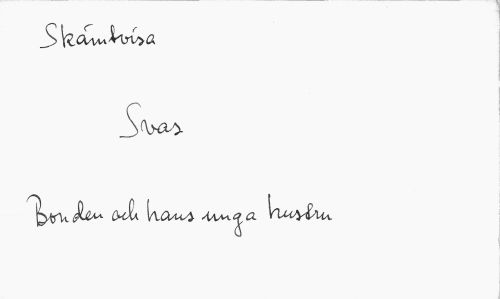 Skämtvisa
Svas
Bonden och hans unga hustru